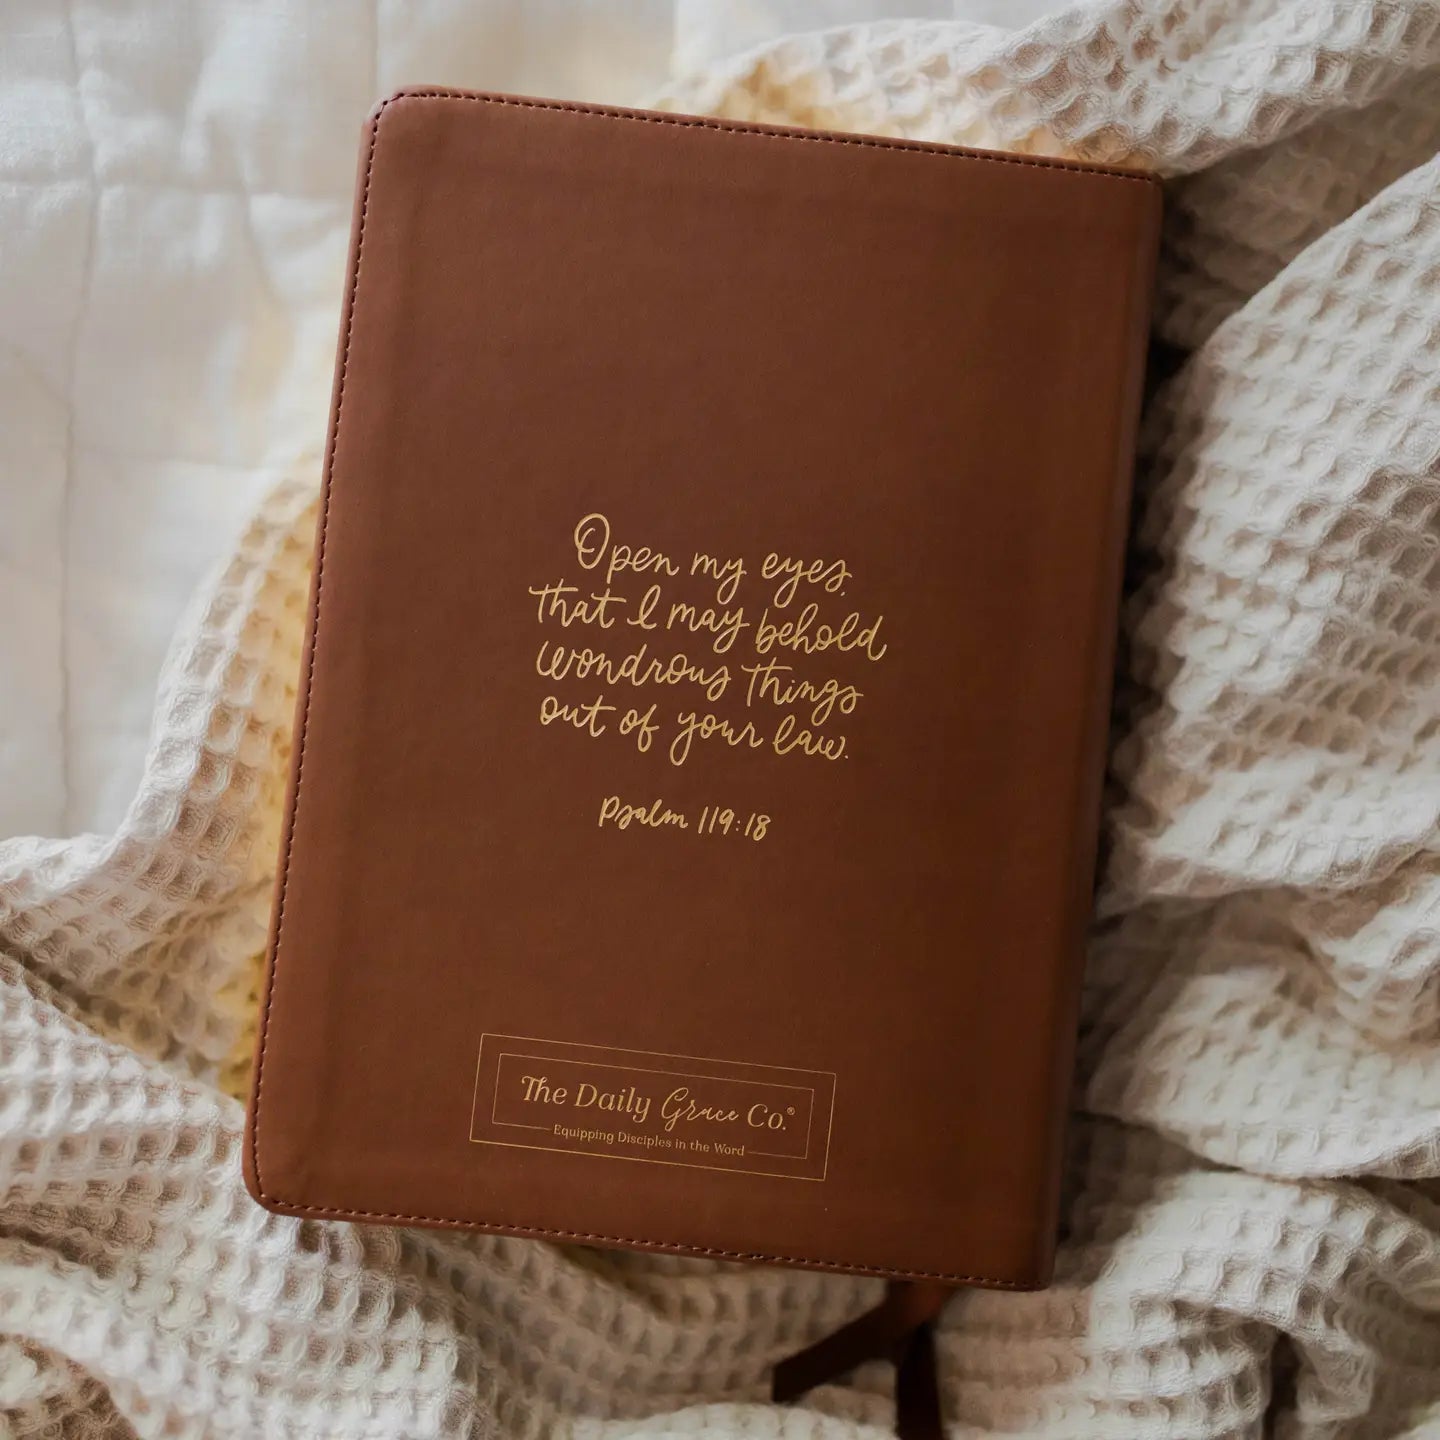 Open my eyes,
that I may behold
wondrous things
out of your law.
Psalm 119:18
The Daily Grace Co.®
Equipping Disciples in the Word